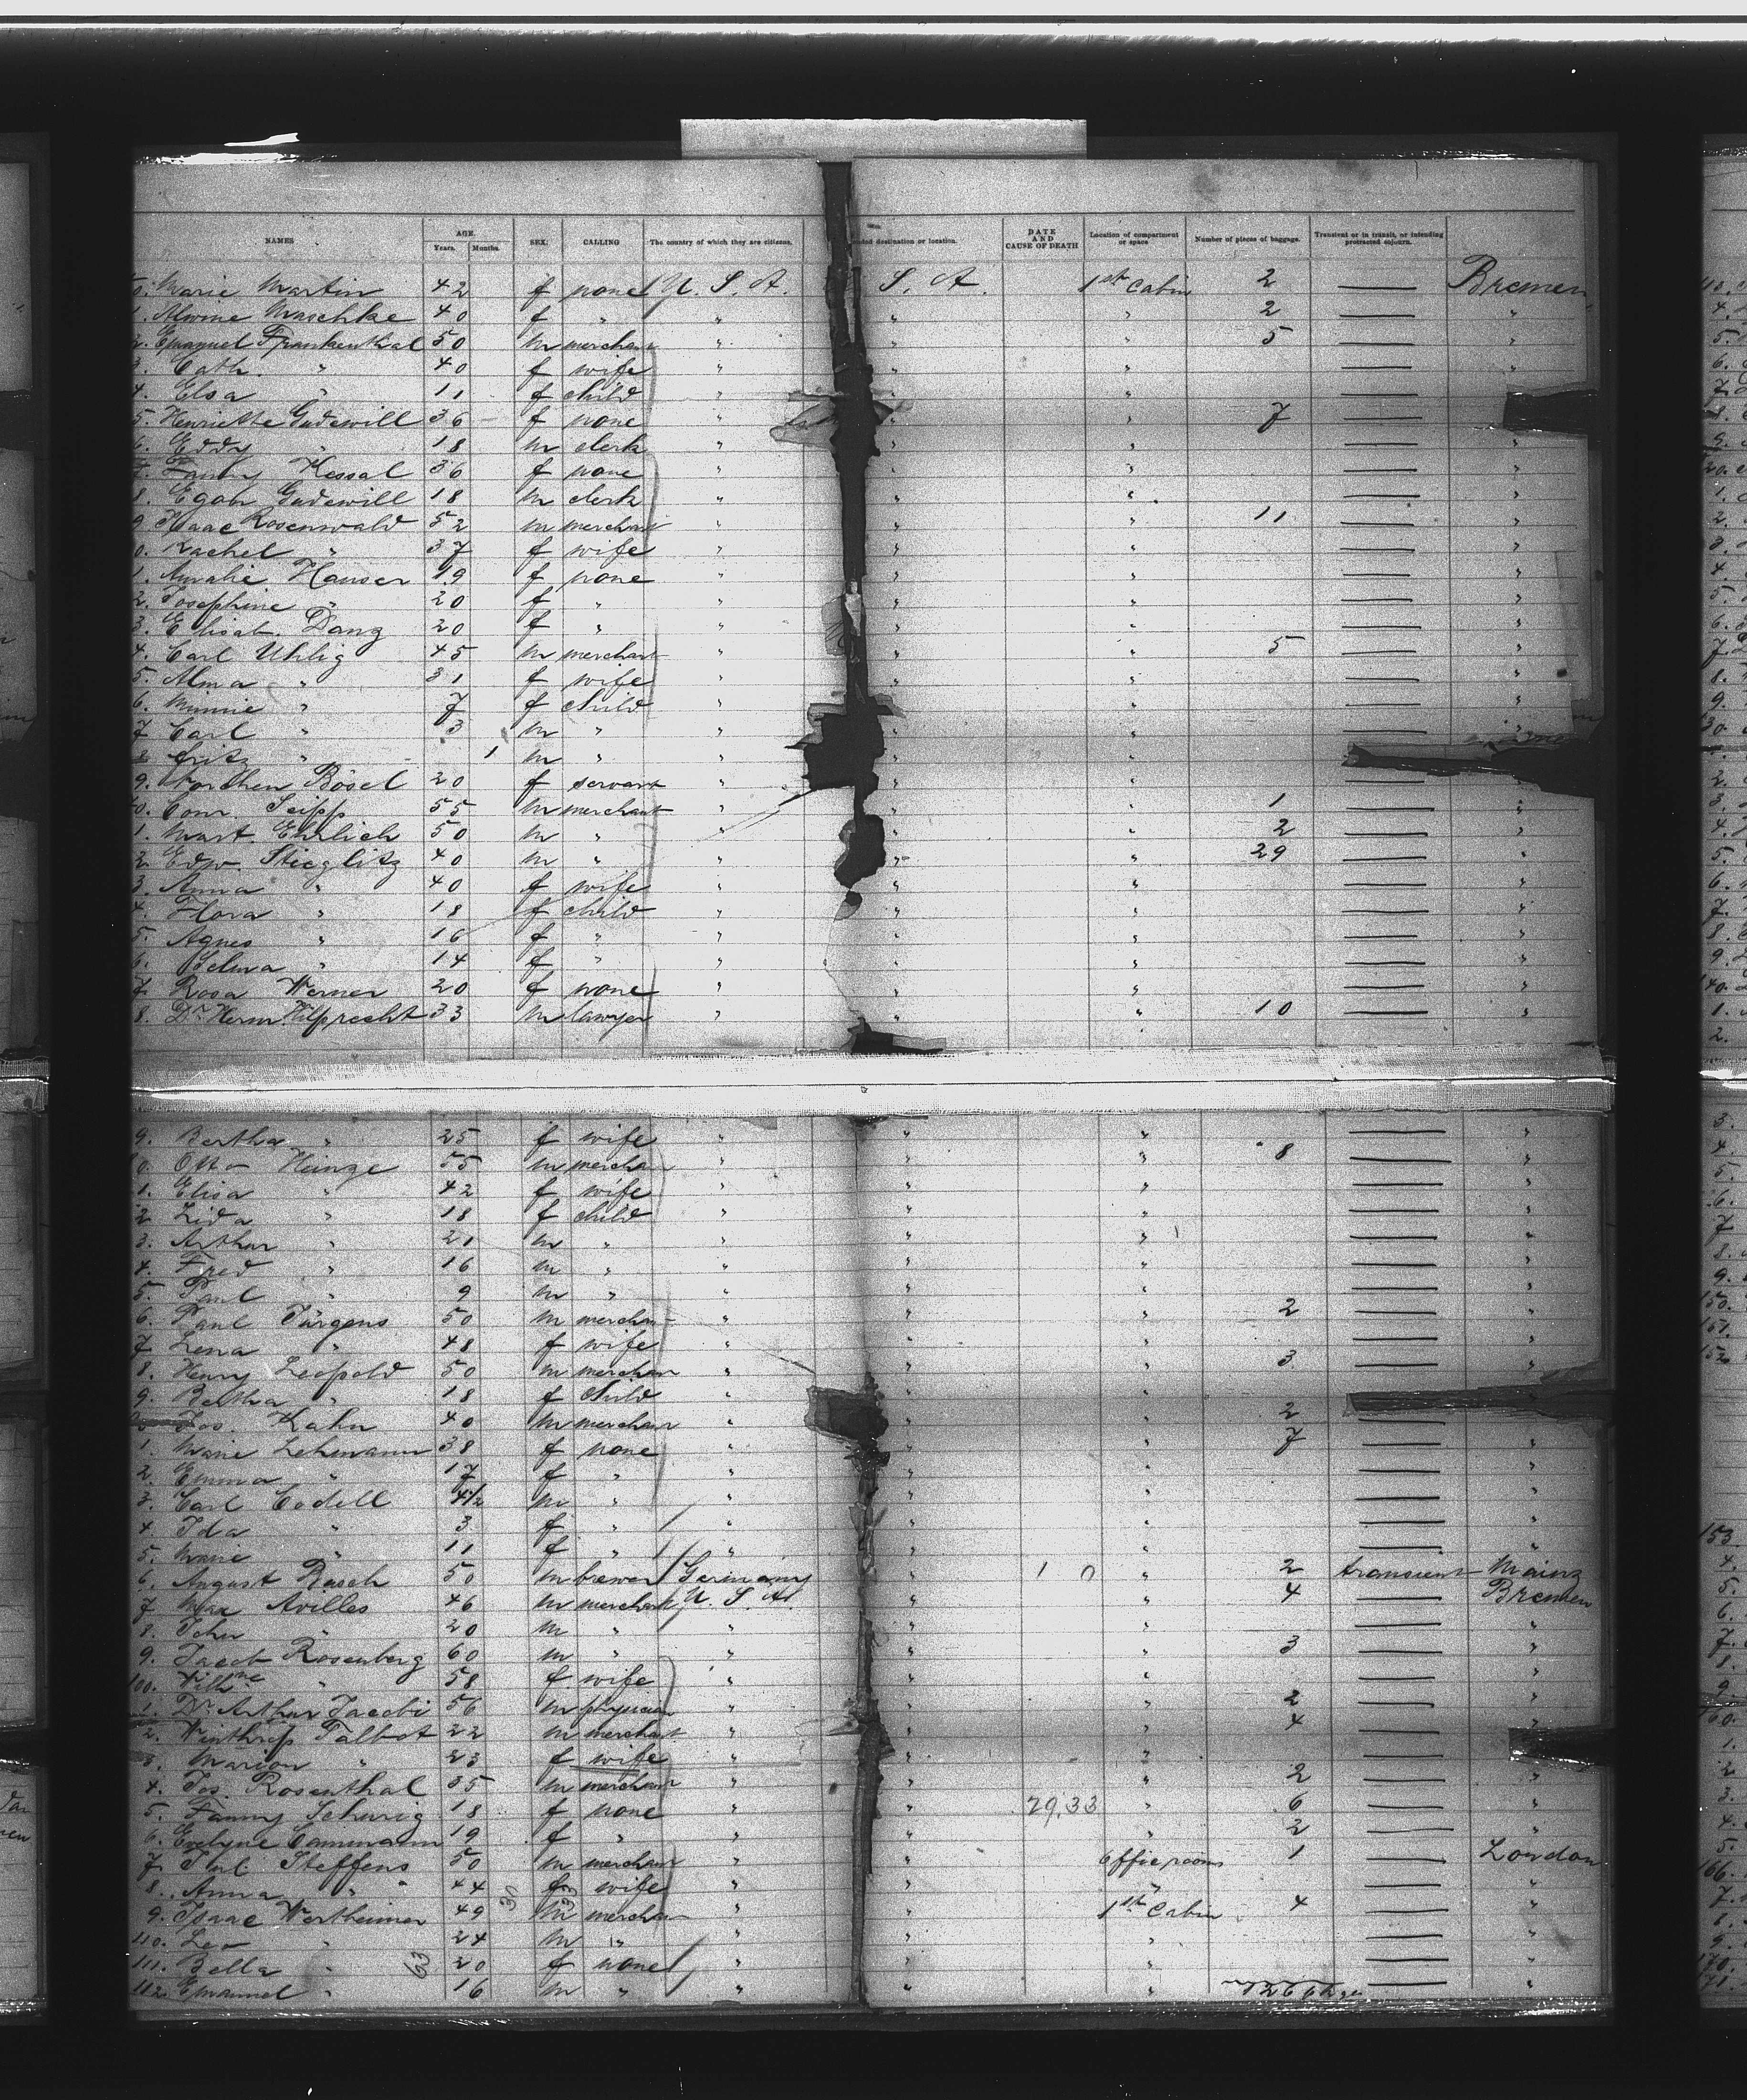 NAMES AGE. Years. Months. SEX. CALLING The country of which they are citizens. destination or location. DATE AND CAUSE OF DEATH Location of compartment or space Number of pieces of baggage. Transient or in transit, or intending protracted sojourn.
0. Marie Martin 42 f none U. S. A. S. A. 1st Cabin 2 — Bremen
1. Alwine Maschke 40 f " " " " 2 — "
2. Emanuel Frankenthal 50 m merchant " " " 5 — "
3. Cath. " 40 f wife " " " — "
4. Elsa " 11 f child " " " — "
5. Henriette Gudewill 36 f none " " " 7 — "
6. Eddy " 18 m clerk " " " — "
7. Fanny Kessal 36 f none " " " — "
8. Egon Gudewill 18 m clerk " " " — "
9. Isaac Rosenwald 52 m merchant " " " 11 — "
0. Rachel " 37 f wife " " " — "
1. Amalie Hauser 19 f none " " " — "
2. Josephine " 20 f " " " " — "
3. Elisab. Dang 20 f " " " " — "
4. Carl Uhlig 45 m merchant " " " 5 — "
5. Alma " 31 f wife " " " — "
6. Minnie " 7 f child " " " — "
7. Carl " 3 m " " " " — "
8. Fritz " 1 m " " " "
9. Dorchen Bösel 20 f servant " " " — "
0. Conr. Seipp 55 m merchant " " " 1 — "
1. Mart. Ehrlich 50 m " " " " 2 — "
2. Edw. Stieglitz 40 m " " " " 29 — "
3. Anna " 40 f wife " " " — "
4. Flora " 18 f child " " " — "
5. Agnes " 16 f " " " " — "
6. Selma " 14 f " " " " — "
7. Rosa Werner 20 f none " " " — "
8. Dr. Herm. Hilprecht 33 m lawyer " " " 10 — "
9. Bertha " 25 f wife " " " — "
0. Otto Heinze 55 m merchant " " " 8 — "
1. Elisa " 42 f wife " " " — "
2. Lida " 18 f child " " " — "
3. Arthur " 21 m " " " " — "
4. Fred " 16 m " " " " — "
5. Paul " 9 m " " " " — "
6. Paul Jürgens 50 m merchant " " " 2 — "
7. Lena " 48 f wife " " " — "
8. Henry Leopold 50 m merchant " " " 3 — "
9. Bertha " 18 f child " " " — "
Jos. Kahn 40 m merchant " " " 2 —
1. Marie Lehmann 38 f none " " " 7 — "
2. Emma " 17 f " " " " — "
3. Carl Codell 4½ m " " " " — "
4. Ida " 3 f " " " " — "
5. Marie " 11 f " " " " — "
6. August Rasch 50 m brewer Germany " 1 0 " 2 transient Mainz
7. Max Avilles 46 m merchant U. S. A. " " 4 — Bremen
8. John " 20 m " " " " — "
9. Jacob Rosenberg 60 m " " " " 3 — "
100. Wilhne " 58 f wife " " " — "
1. Dr. Arthur Jacobi 56 m physician " " " 2 — "
2. Winthrop Talbot 22 m merchant " " " 4 — "
3. Marion " 23 f wife " " " — "
4. Jos. Rosenthal 35 m merchant " " " 2 — "
5. Fanny Schurig 18 f none " " 29,33 " 6 — "
6. Evelyne Cammann 19 f " " " " 2 — "
7. Jul. Steffens 50 m merchant " " Offic rooms 1 — London
8. Anna " 44 f wife " " " — "
9. Isaac Wertheimer 49 30 m merchant " " 1st Cabin 4 — "
110. Leo " 24 m " " " " — "
111. Bella " 63 20 f none " " " — "
112. Emanuel " 16 m " " " " — "